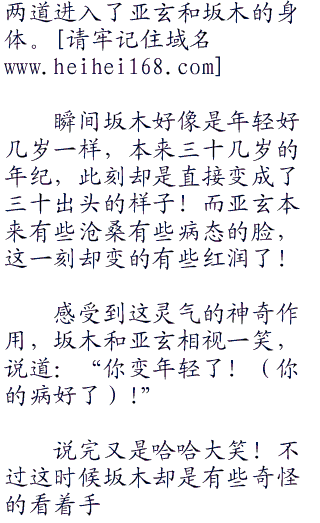 两道进入了亚玄和坂木的身
体。[请牢记住域名
www.heihei168.com]
瞬间坂木好像是年轻好
几岁一样，本来三十几岁的
年纪，此刻却是直接变成了
三十出头的样子！而亚玄本
来有些沧桑有些病态的脸，
这一刻却变的有些红润了！
感受到这灵气的神奇作
用，坂木和亚玄相视一笑，
说道：“你变年轻了！（你
的病好了）！”
说完又是哈哈大笑！不
过这时候坂木却是有些奇怪
的看着手